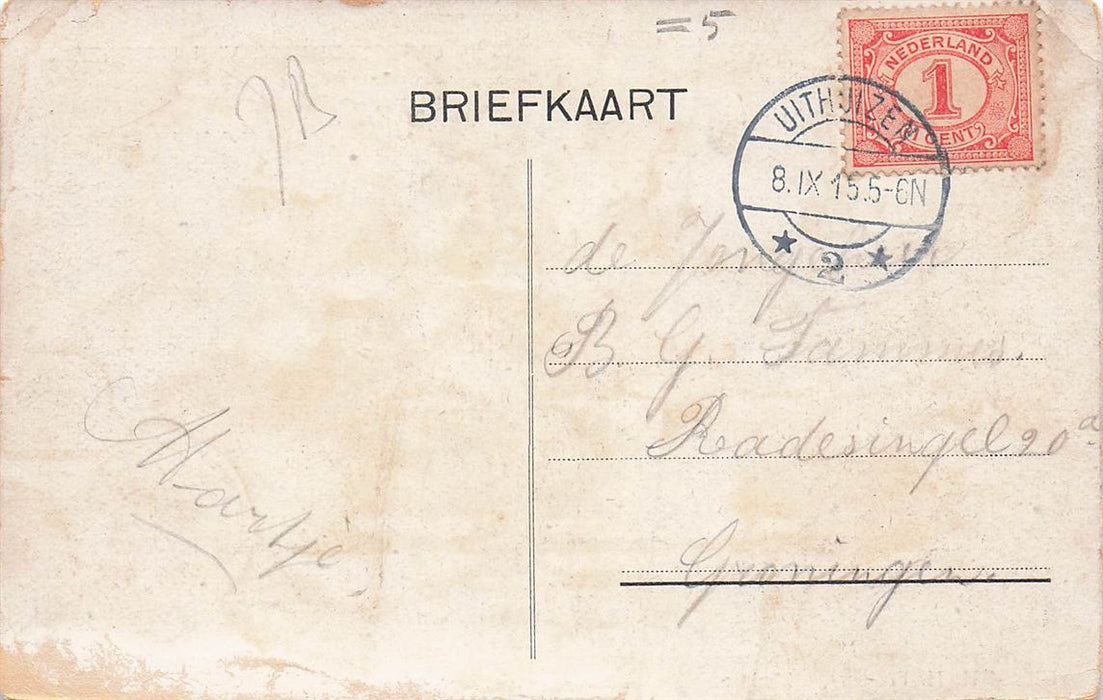 = 5
BRIEFKAART
NEDERLAND
1
CENT
UITHUIZEN
8.IX 15.5-6N
2
de
B. G. Tammes.
Radesingel 20a
Groningen.
Martje